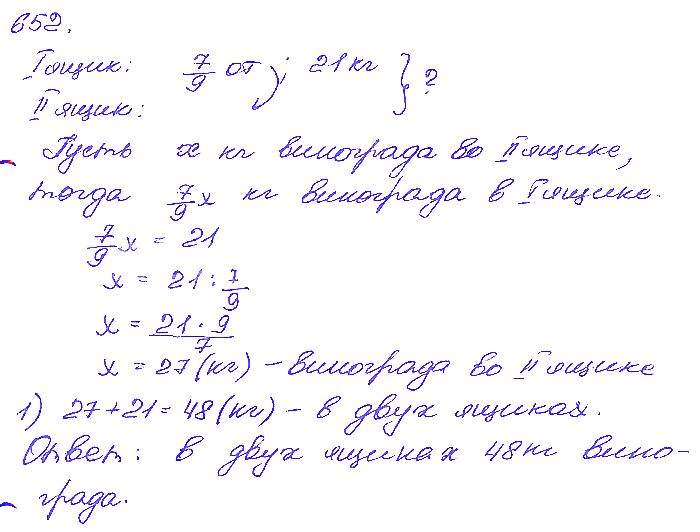 652.
I ящик: 7/9 от ; 21 кг } ?
II ящик:
Пусть x кг винограда во II ящике,
тогда 7/9 x кг винограда в I ящике.
7/9 x = 21
x = 21 : 7/9
x = 21 · 9 / 7
x = 27 (кг) – винограда во II ящике
1) 27 + 21 = 48 (кг) – в двух ящиках.
Ответ: в двух ящиках 48 кг вино-
града.